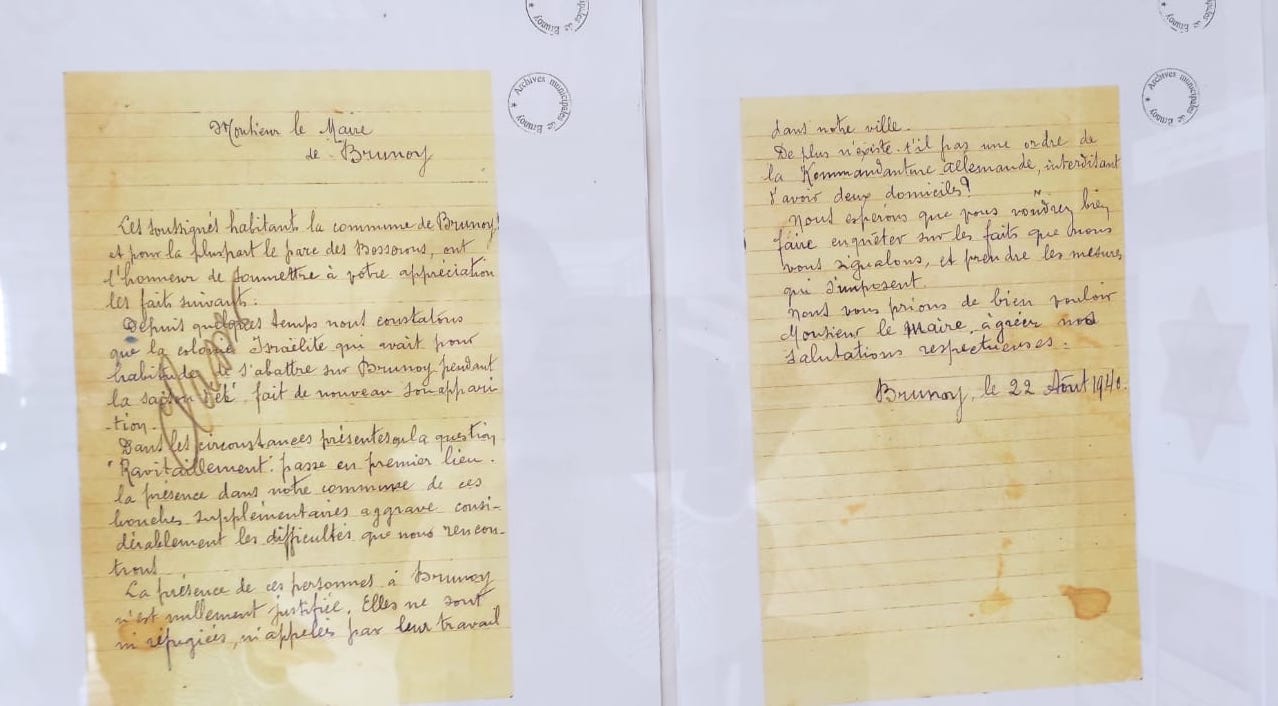 Monsieur le Maire
de Brunoy
Les soussignés habitants la commune de Brunoy
et pour la pluspart le parc des Bosserons, ont
l'honneur de soumettre à votre appréciation
les faits suivants:
Depuis quelques temps nous constatons
que la colonie Israëlite qui avait pour
habitude de s'abattre sur Brunoy pendant
la saison d'été, fait de nouveau son appari-
-tion.
Dans les circonstances présentes ou la question
"Ravitaillement" passe en premier lieu.
la présence dans notre commune de ces
bouches supplémentaires aggrave consi-
dérablement les difficultés que nous rencon-
trons
La présence de ces personnes à Brunoy
n'est nullement justifiée. Elles ne sont
ni réfugiées, ni appelées par leur travail
Archives municipales de Brunoy
dans notre ville.
De plus n'existe-t'il pas une ordre de
la Kommandanture allemande, interdisant
d'avoir deux domiciles?
Nous esperons que vous voudrez bien
faire enquêter sur les faits que nous
vous signalons, et prendre les mesures
qui s'imposent.
Nous vous prions de bien vouloir
Monsieur le Maire, agréer nos
salutations respectueuses.
Brunoy, le 22 Août 1940.
Archives municipales de Brunoy